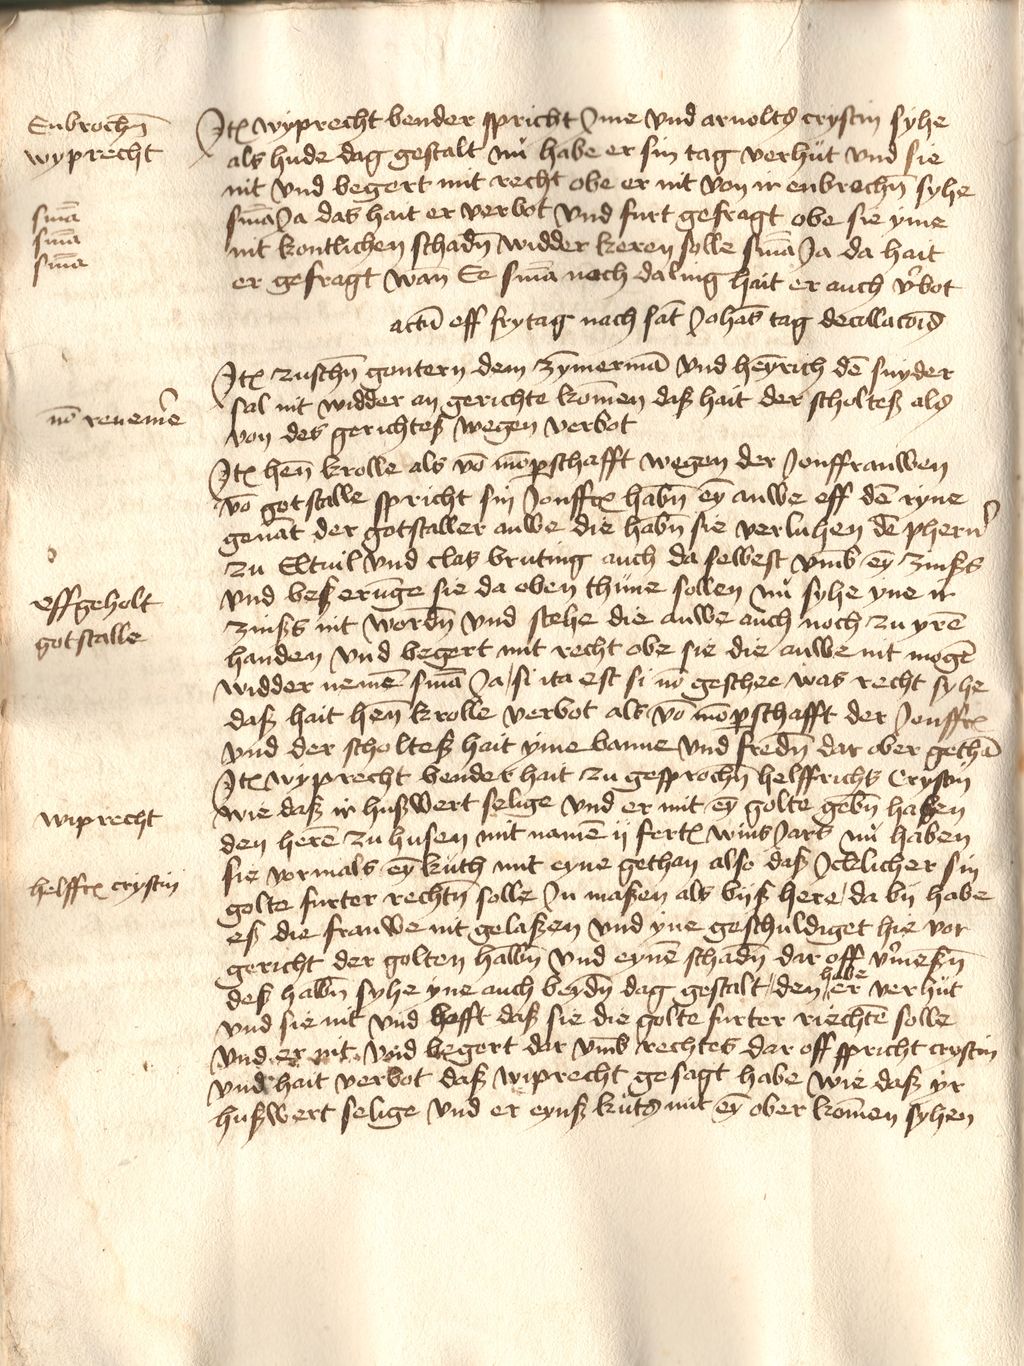 Enbrochn̄
wyprecht
Itꝫ wyprecht bender spricht Ime vnd arnolts crystin syhe
als hude dag gestalt nů habe er sin tag verhüt vnd sie
nit vnd begert mit recht obe er nit von ir enbrechn̄ syhe
sniā
sniā
sniā
sniā Ja das hait er verbot vnd furt gefragt obe sie yme
nit kontlichen schadn̄ widder keren solle sniā Ja da hait
er gefragt wan Ee sniā noch daling hait er auch v̾bot
actū eff frytag nach sāt Johās tag decollacōis
Itꝫ zuschn̄ gontern dem zȳmermā vnd heyrich dē snyder
nō reuem̄e
sal nit widder an gerichte kom̄en daß hait der scholteß als
von des gerichteß wegen verbot
Itꝫ hen̄ krolle als vō mōpschafft wegen der Jonffrauwen
vō gotstalle spricht sin Jonffrꝫ habn̄ eȳ auwe eff dē ryne
genāt der gotstaller auwe die habn̄ sie verluhen dē phern̾
zu Eltuil vnd clas bruting auch da selbest vmb eȳ zinßs
effgeholt
gotstalle
vnd beßerūge sie da oben thüne sollen nů syhe yne ir
zinßs nit wordn̄ vnd stehe die auwe auch noch zu yrē
handen vnd begert mit recht obe sie die auwe nit mogē
widder nemē sniā Ja / si ita est si nō geschee was recht syhe
daß hait hen̄ krolle verbot als vō mōpschafft der Jonffrꝫ
vnd der scholteß hait yme banne vnd fredn̄ dar ober gethā
Itꝫ wyprecht bender hait zu gesprochn̄ helffrichs Crystin
wiprecht
wie daß ir hußwert selige vnd er mit eȳ golte gebn̄ haben
den herē zu husen mit namē ij fertꝫ wins Jars nů haben
helffrꝫ crystin
sie vormals eȳ kůth mit eyne gethan also daß Icklicher sin
golte furter rechtn̄ solle In maßen als bijß here / da bij habe
eß die frauwe nit gelaßen vnd yne geschuldiget hie vor
gericht der golten halbn̄ vnd eynē schadn̄ dar off v̾meßn̄
deß halbn̄ syhe yne auch beydn̄ dag gestalt / den habe er verhüt
vnd sie nit vnd hofft daß sie die golte furter riechtē solle
vnd er nit vnd begert dar vmb rechtes dar off spricht crystin
vnd hait verbot daß wiprecht gesagt habe wie daß yr
hußwert selige vnd er eynß kůts mit eȳ ober kom̄en syhen